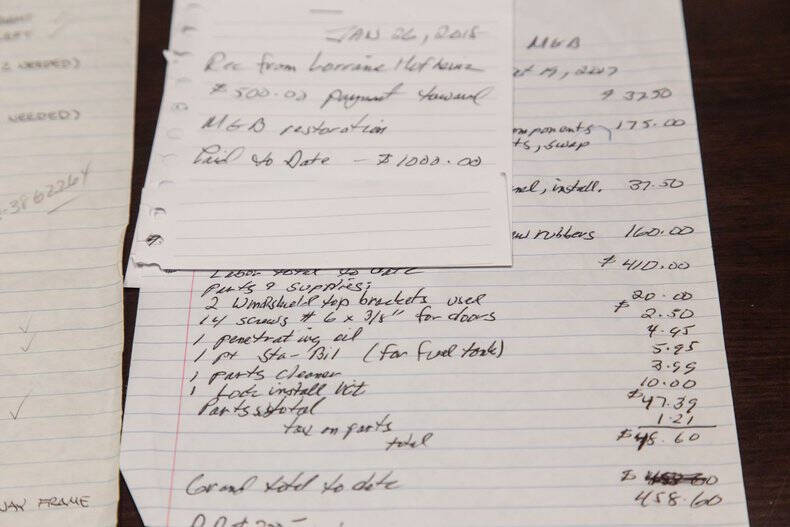 2 NEEDED)
NEEDED)
-3862264
WAY FRAME
JAN 26, 2015
Rec from Lorraine
$500.00 payment toward
MGB restoration
Paid to Date - $1000.00
MGB
19, 2017
$ 37.50
omponents 175.00
ts, swap
nel, install. 37.50
ew rubbers 160.00
Labor total to date $410.00
parts & supplies:
2 windshield top brackets used 20.00
14 screws # 6 x 3/8" for doors $2.50
1 penetrating oil 4.95
1 pt Sta-Bil (for fuel tank) 5.95
1 parts cleaner 3.99
1 Lock install kit 10.00
Parts subtotal $47.39
tax on parts 1.21
total $48.60
Grand total to date
458.60